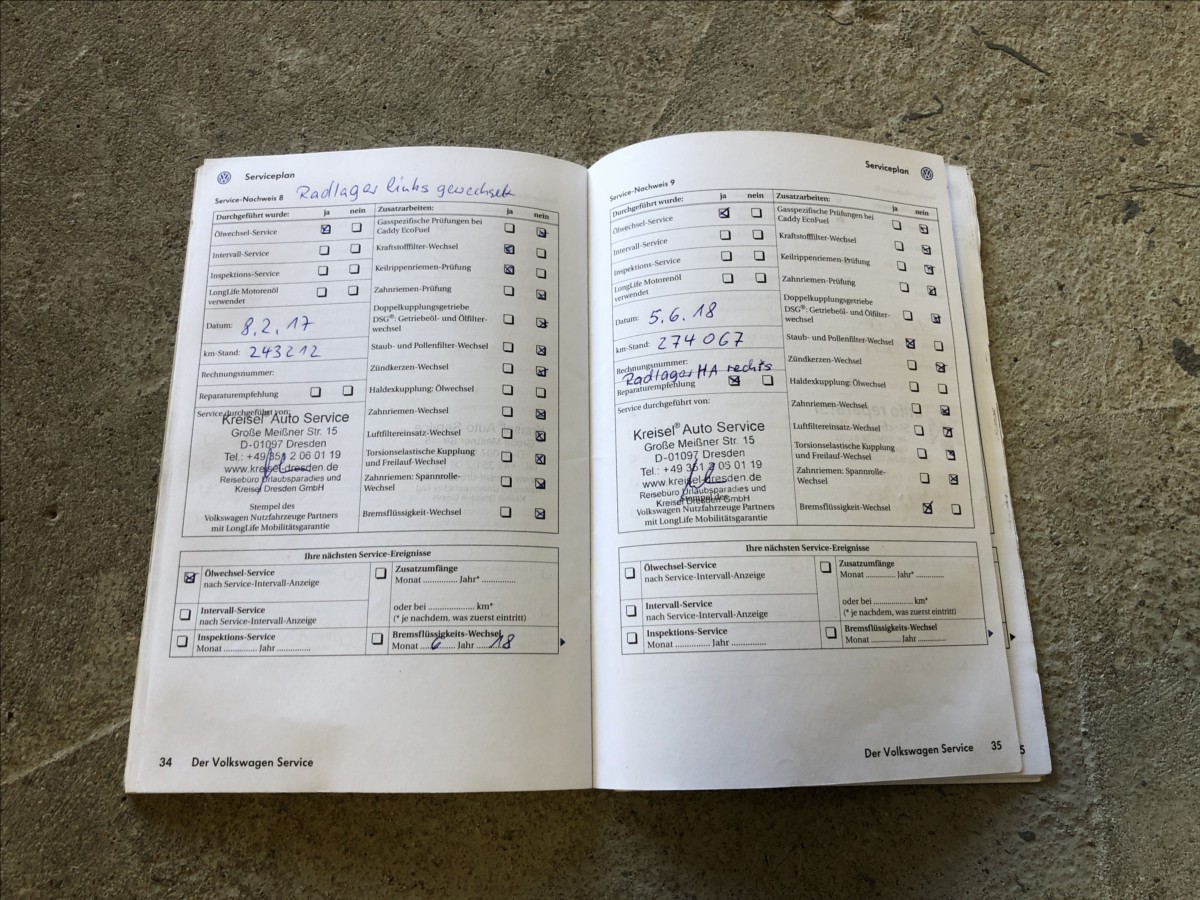 Serviceplan
Service-Nachweis 8 Radlager links gewechselt
Durchgeführt wurde: ja nein Zusatzarbeiten: ja nein
Ölwechsel-Service
Gasspezifische Prüfungen bei
Caddy EcoFuel
Intervall-Service
Kraftstofffilter-Wechsel
Inspektions-Service
Keilrippenriemen-Prüfung
LongLife Motorenöl
verwendet
Zahnriemen-Prüfung
Datum: 8.2.17
Doppelkupplungsgetriebe
DSG®: Getriebeöl- und Ölfilter-
wechsel
km-Stand: 243212
Staub- und Pollenfilter-Wechsel
Rechnungsnummer:
Zündkerzen-Wechsel
Reparaturempfehlung
Haldexkupplung: Ölwechsel
Service durchgeführt von:
Zahnriemen-Wechsel
Luftfiltereinsatz-Wechsel
Torsionselastische Kupplung
und Freilauf-Wechsel
Zahnriemen: Spannrolle-
Wechsel
Bremsflüssigkeit-Wechsel
Kreisel Auto Service
Große Meißner Str. 15
D-01097 Dresden
Tel.: +49 351 2 06 01 19
www.kreisel-dresden.de
Reisebüro Urlaubsparadies und
Kreisel Dresden GmbH
Stempel des
Volkswagen Nutzfahrzeuge Partners
mit LongLife Mobilitätsgarantie
Ihre nächsten Service-Ereignisse
Ölwechsel-Service
nach Service-Intervall-Anzeige
Zusatzumfänge
Monat .............. Jahr* ..............
oder bei ..................... km*
(* je nachdem, was zuerst eintritt)
Intervall-Service
nach Service-Intervall-Anzeige
Inspektions-Service
Monat .............. Jahr ..............
Bremsflüssigkeits-Wechsel
Monat ....6..... Jahr ....18
34 Der Volkswagen Service
Serviceplan
Service-Nachweis 9
Durchgeführt wurde: ja nein Zusatzarbeiten: ja nein
Ölwechsel-Service
Gasspezifische Prüfungen bei
Caddy EcoFuel
Intervall-Service
Kraftstofffilter-Wechsel
Inspektions-Service
Keilrippenriemen-Prüfung
LongLife Motorenöl
verwendet
Zahnriemen-Prüfung
Datum: 5.6.18
Doppelkupplungsgetriebe
DSG®: Getriebeöl- und Ölfilter-
wechsel
km-Stand: 274067
Staub- und Pollenfilter-Wechsel
Rechnungsnummer:
Radlager HA rechts
Zündkerzen-Wechsel
Reparaturempfehlung
Haldexkupplung: Ölwechsel
Service durchgeführt von:
Zahnriemen-Wechsel
Luftfiltereinsatz-Wechsel
Torsionselastische Kupplung
und Freilauf-Wechsel
Zahnriemen: Spannrolle-
Wechsel
Bremsflüssigkeit-Wechsel
Kreisel® Auto Service
Große Meißner Str. 15
D-01097 Dresden
Tel.: +49 351 2 06 01 19
www.kreisel-dresden.de
Reisebüro Urlaubsparadies und
Kreisel Dresden GmbH
Stempel des
Volkswagen Nutzfahrzeuge Partners
mit LongLife Mobilitätsgarantie
Ihre nächsten Service-Ereignisse
Ölwechsel-Service
nach Service-Intervall-Anzeige
Zusatzumfänge
Monat .............. Jahr* ..............
oder bei ..................... km*
(* je nachdem, was zuerst eintritt)
Intervall-Service
nach Service-Intervall-Anzeige
Inspektions-Service
Monat .............. Jahr ..............
Bremsflüssigkeits-Wechsel
Monat .............. Jahr ..............
Der Volkswagen Service 35
5